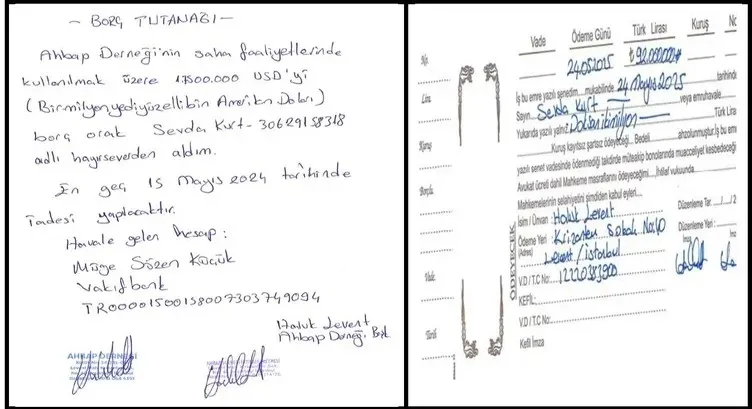 - BORÇ TUTANAĞI -
Ahbap Derneği'nin saha faaliyetlerinde
kullanılmak üzere 1.7500.000 USD'yi
(Birmilyonyediyüzellibin Amerikan Doları)
borç olarak Sevda Kurt - 30629158318
adlı hayırseverden aldım.
En geç 15 Mayıs 2024 tarihinde
iadesi yapılacaktır.
Havale gelen hesap:
Müge Sözen Küçük
Vakıfbank
TR000015001580073037 49094
Haluk Levent
Ahbap Derneği Bşk.
AHBAP DERNEĞİ
Vade Ödeme Günü Türk Lirası Kuruş No
24.05.2025 ₺92.000.000#
İş bu emre yazılı senedim... mukabilinde 24 Mayıs 2025 tarihinde
Sayın Sevda Kurt veya emruhavale
Yukarıda yazılı yalnız Doksanikimilyon Türk Lira
Kuruş kayıtsız şartsız ödeyeceğ... Bedeli ahzolunmuştur. İş bu em
yazılı senet vadesinde ödenmediği takdirde müteakip bonolarında muacceliyet kesbedeceği
Avukat ücreti dahil Mahkeme masraflarını ödeyeceğim... İhtilaf vukuunda
Mahkemelerinin selahiyetini şimdiden kabul eyleri
ÖDEYECEK
İsim / Ünvan : Haluk Levent Düzenleme Tar. .../.../2
Ödeme Yeri : Krizantem Sokak No:40 Düzenleme Yeri :
(Adresi) Levent / İstanbul İmza İmz
V.D / T.C No: 12220383900
KEFİL:
V.D / T.C No:
Kefil İmza
No.
Lira
Kuruş
Borçlu
Vade
Tarih